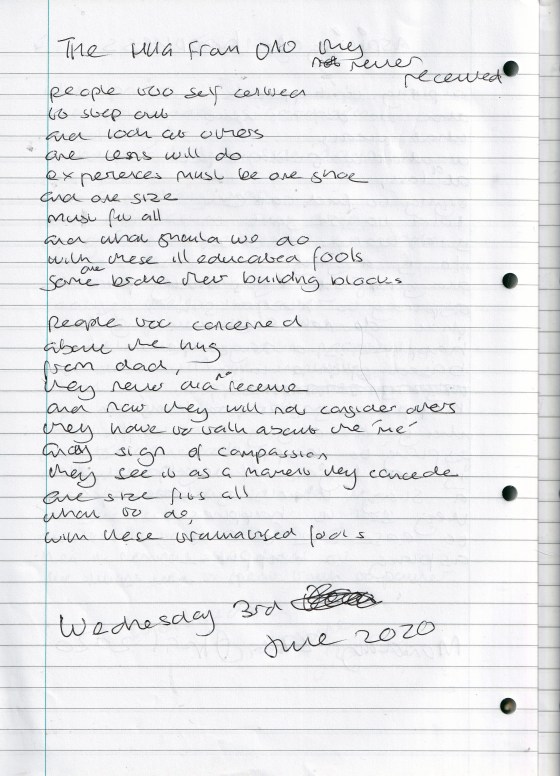 The Hug From DAD they
never
received
people too self centred
to step out
and look at others
one lens will do
experiences must be one shoe
and one size
must fit all
and what should we do
with these ill educated fools
some one broke their building blocks
People too concerned
about the hug
from dad,
they never did receive
and now they will not consider others
they have to talk about the 'me'
any sign of compassion
they see it as a moment they concede
one size fits all
what to do,
with these traumatised fools
Wednesday 3rd
June 2020